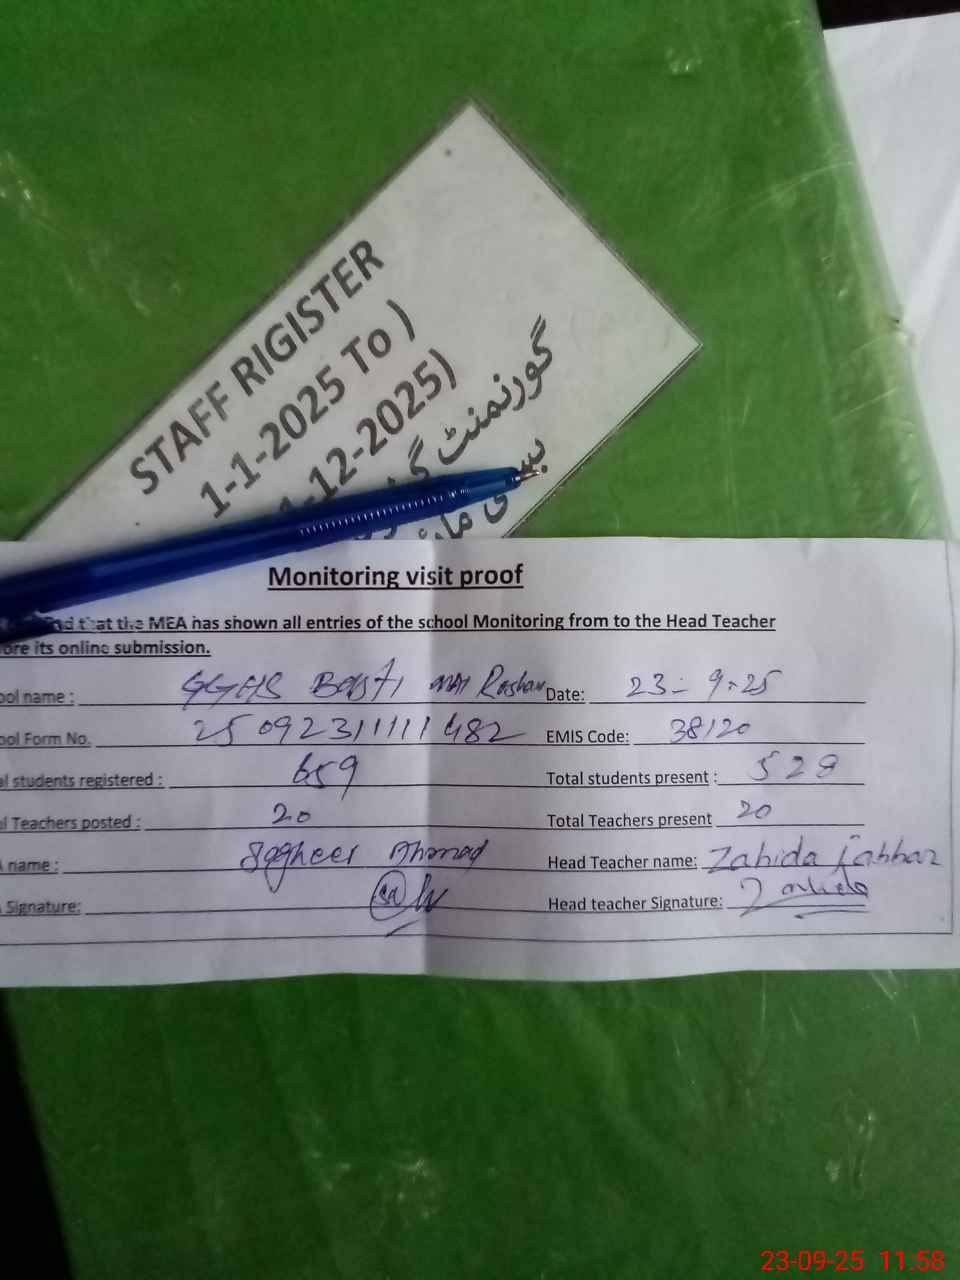 STAFF RIGISTER
1-1-2025 To )
-12-2025)
گورنمنٹ
بستی
Monitoring visit proof
that the MEA has shown all entries of the school Monitoring from to the Head Teacher
ore its online submission.
ool name : GGHS Basti Mai Roshan Date: 23-9-25
ool Form No. 250923111111482 EMIS Code: 38120
al students registered : 659 Total students present : 528
l Teachers posted : 20 Total Teachers present 20
name : Sagheer Ahmad Head Teacher name: Zahida Jabbar
Signature: Head teacher Signature: Zahida
23-09-25 11.58